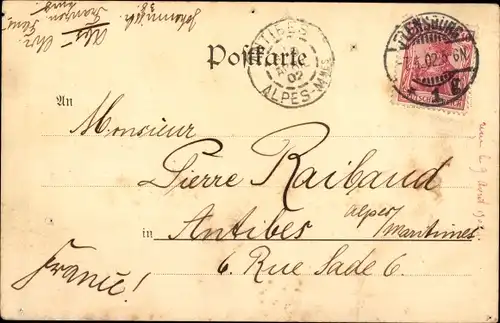 Postkarte
ANTIBES
02
ALPES-MMES
FLENSBURG
.4.02.
6 N.
1 g.
An
Monsieur
Pierre Raibaud
in Antibes Alpes Maritimes
6. Rue Sade 6.
France!